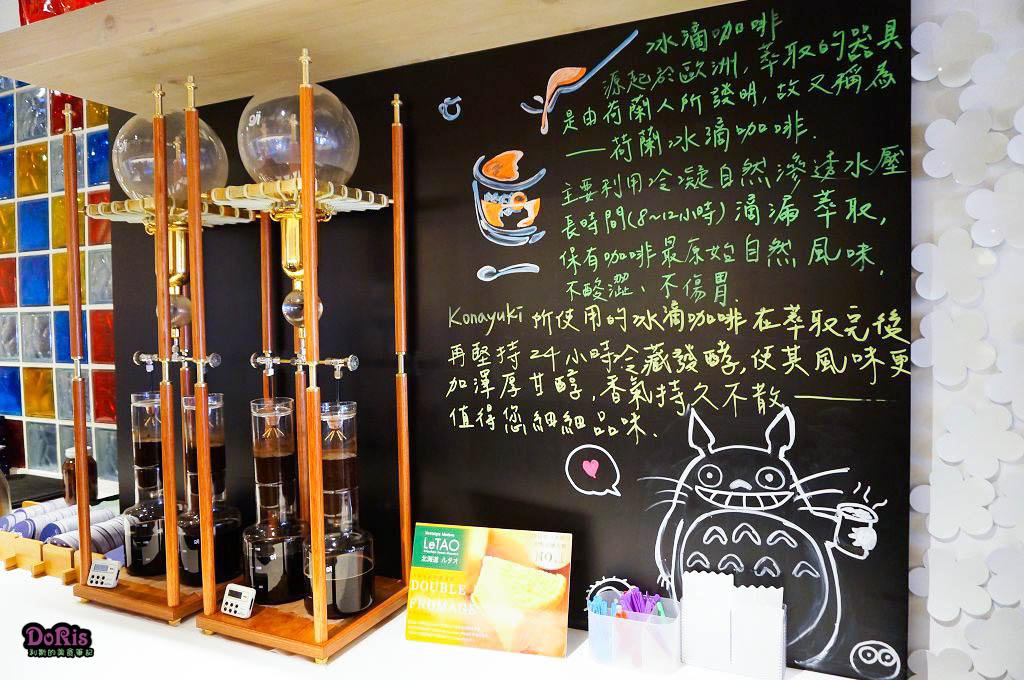 冰滴咖啡
源起於歐洲, 萃取的器具
是由荷蘭人所發明, 故又稱為
——荷蘭冰滴咖啡.
主要利用冷凝自然滲透水壓
長時間(8~12小時)滴漏萃取,
保有咖啡最原始自然風味,
不酸澀、不傷胃
Konayuki 所使用的冰滴咖啡在萃取完後
再堅持24小時冷藏發酵, 使其風味更
加澤厚甘醇, 香氣持久不散——
值得您細細品味.
LeTAO
北海道 ルタオ
DOUBLE
FROMAGE
NO.1
DoRis
利斯的美食筆記